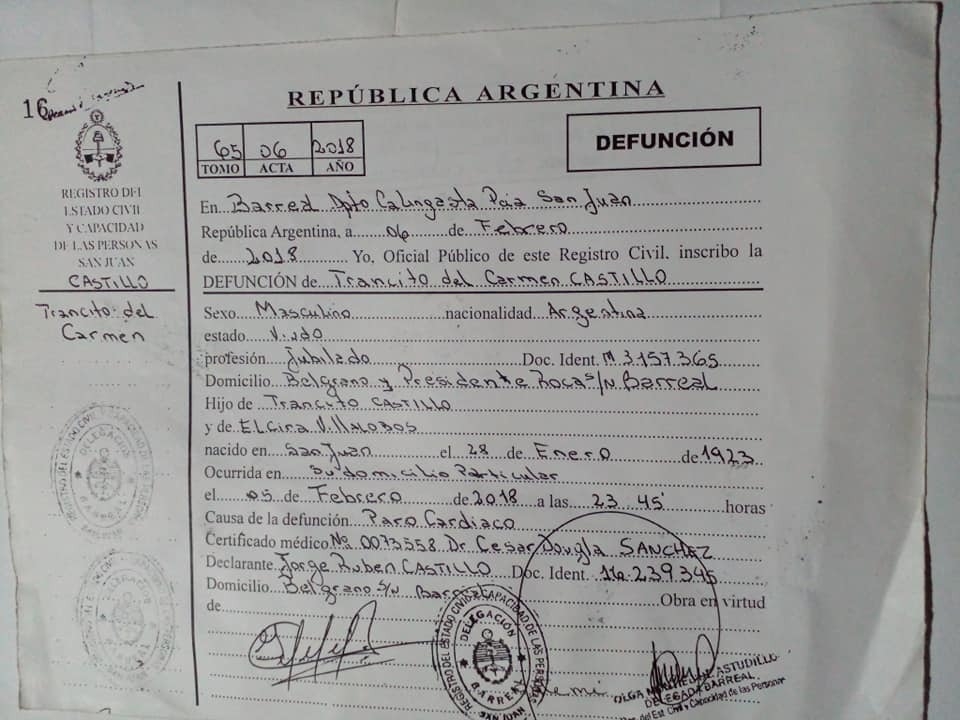 16
REPÚBLICA ARGENTINA
65 06 2018
TOMO ACTA AÑO
DEFUNCIÓN
REGISTRO DEL
ESTADO CIVIL
Y CAPACIDAD
DE LAS PERSONAS
SAN JUAN
CASTILLO
Trancito del
Carmen
En Barreal Dpto Calingasta Pcia San Juan
República Argentina, a 06 de Febrero
de 2018 Yo, Oficial Público de este Registro Civil. inscribo la
DEFUNCIÓN de Trancito del Carmen CASTILLO
Sexo Masculino nacionalidad Argentina
estado Viudo
profesión Jubilado Doc. Ident. M 3.157.365
Domicilio Belgrano y Presidente Roca s/N Barreal
Hijo de Trancito CASTILLO
y de Elcira VILLALOBOS
nacido en San Juan el 28 de Enero de 1923
Ocurrida en Su domicilio Particular
el 05 de Febrero de 2018 a las 23 45 horas
Causa de la defunción Paro Cardiaco
Certificado médico Nº 0073558 Dr Cesar Dougla SANCHEZ
Declarante Jorge Ruben CASTILLO Doc. Ident. 16.239.345
Domicilio Belgrano s/N Barreal Obra en virtud
de
REGISTRO DEL ESTADO CIVIL Y CAPACIDAD DE LAS PERSONAS
DELEGACIÓN
BARREAL
SAN JUAN
OLGA ASTUDILLO
DELEGADA BARREAL
del Est. Civil y Capacidad de las Personas